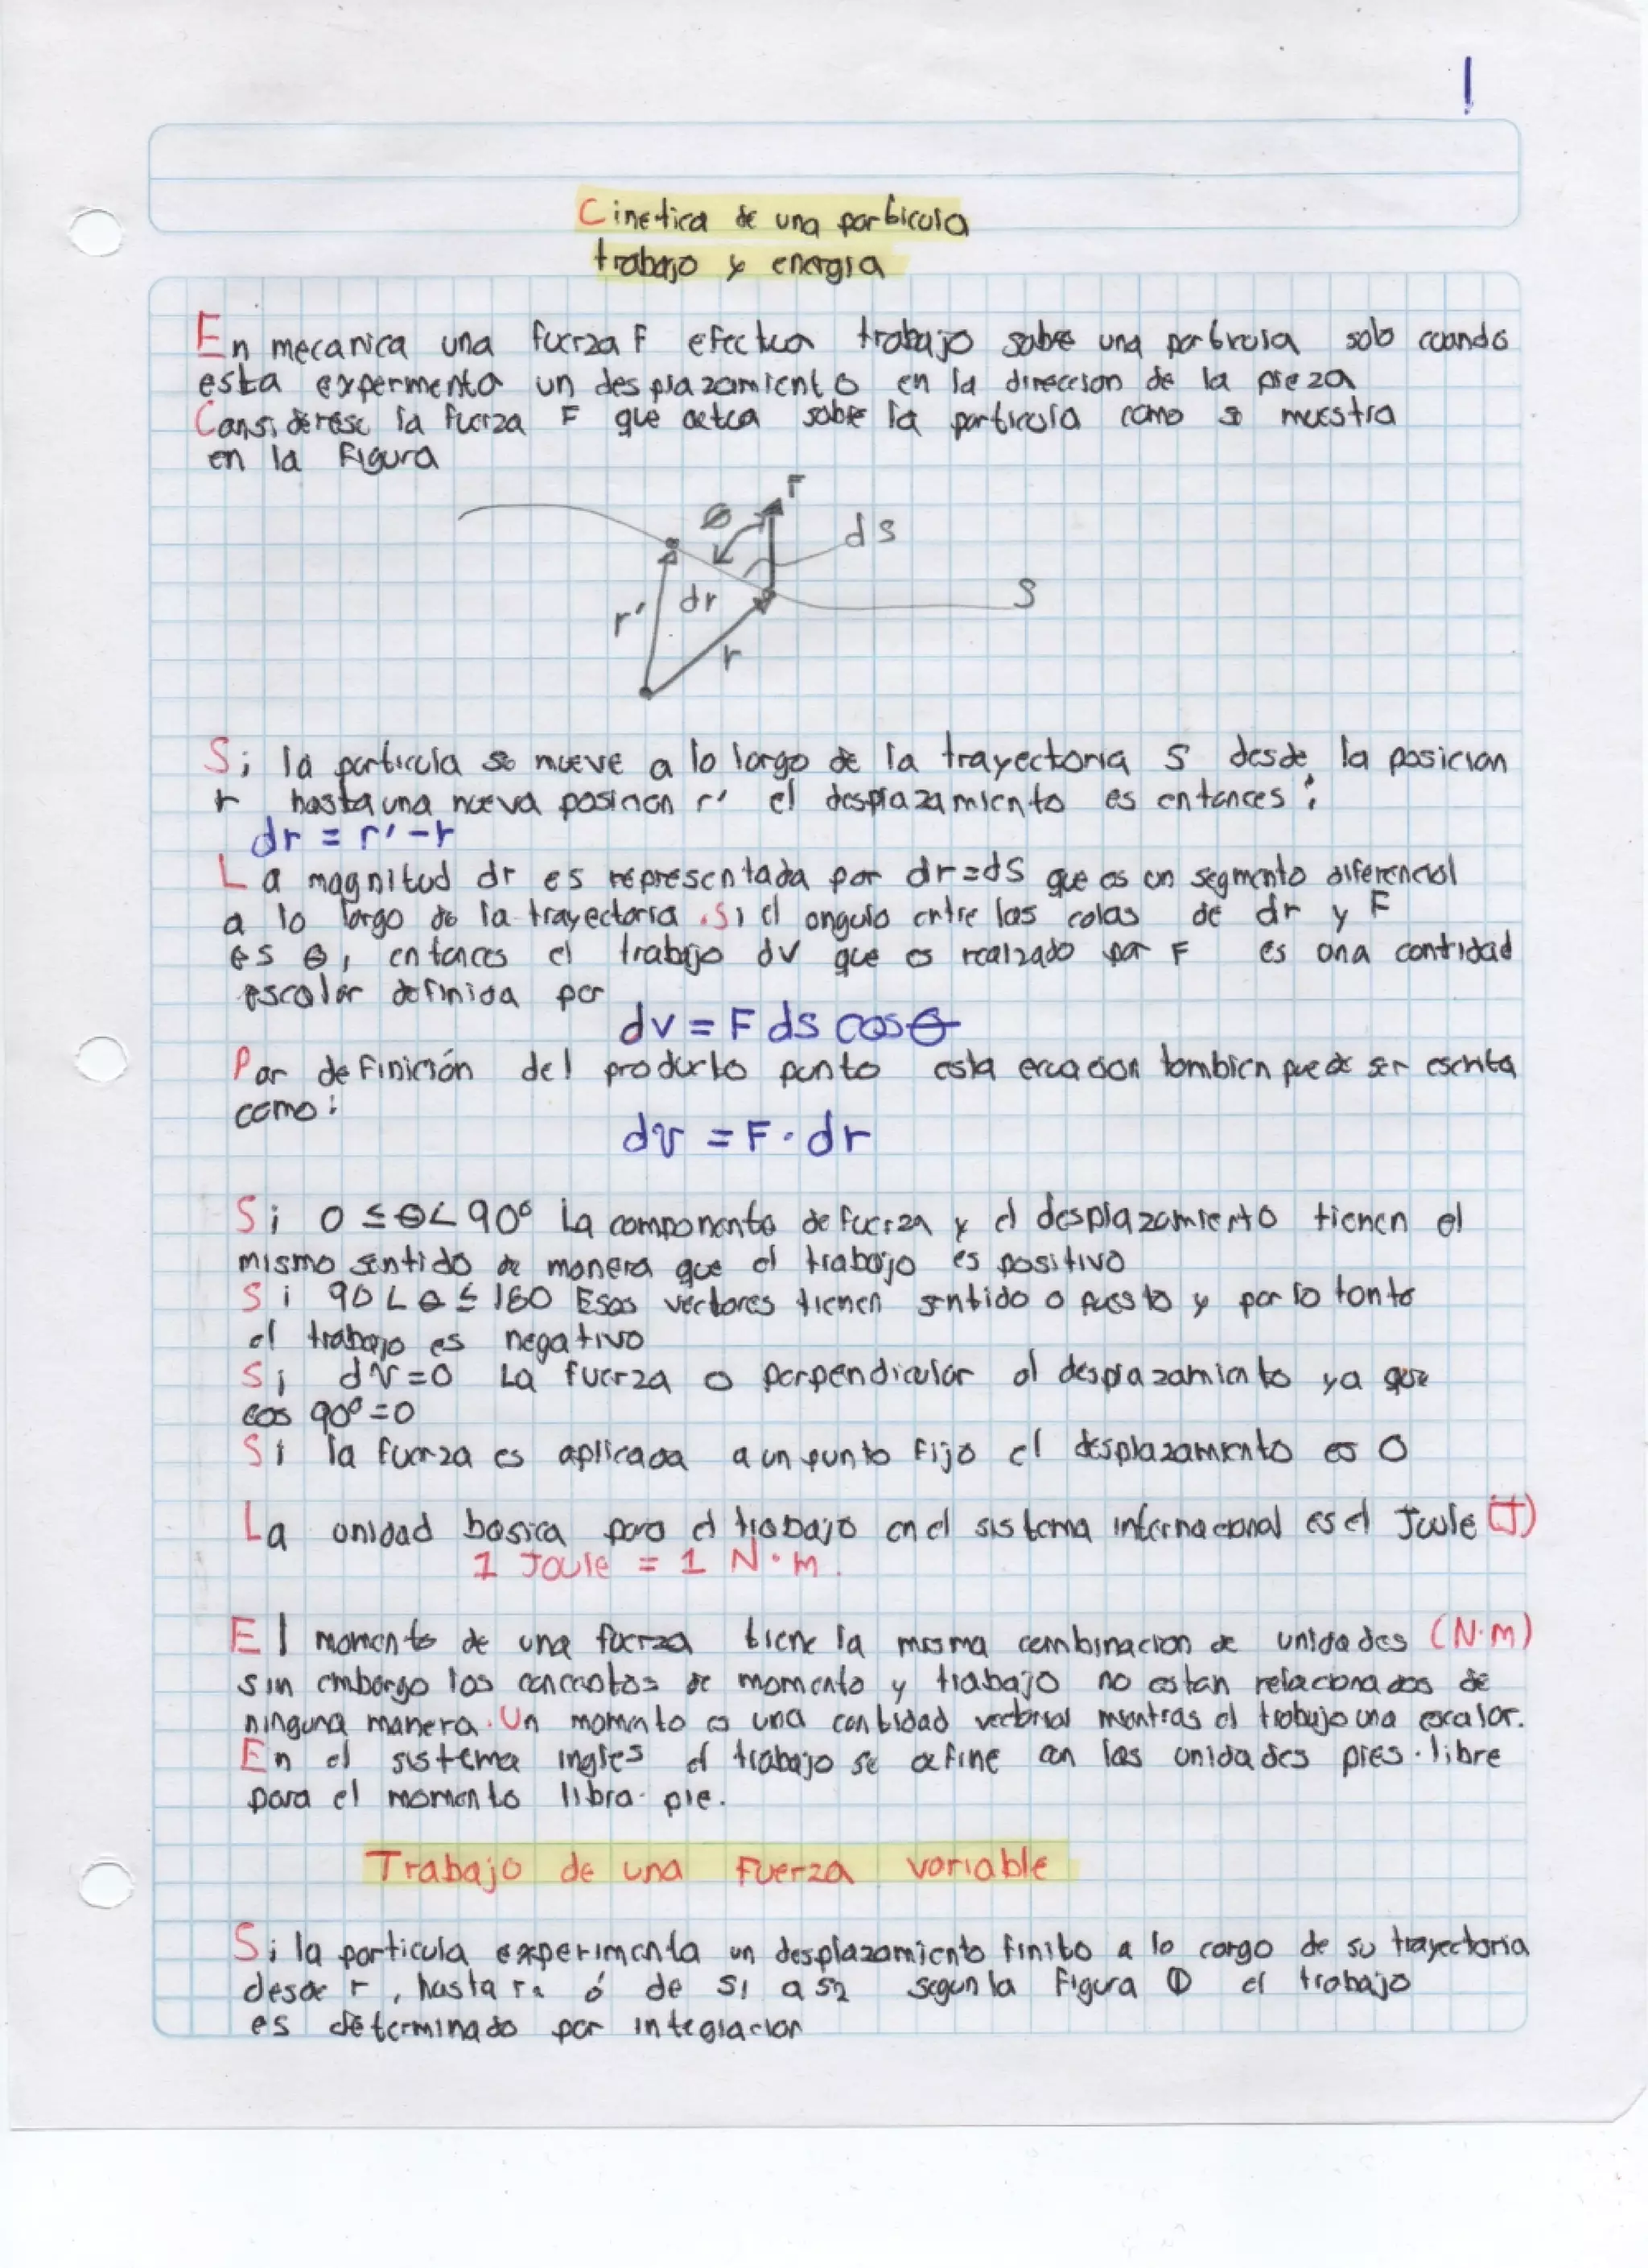 1
Cinetica de una particula
trabajo y energia
En mecanica una fuerza F efectua trabajo sobre una particula solo cuando
esta expermenta un desplazamiento en la direccion de la pieza
Considerese la fuerza F que actua sobre la particula como se muestra
en la Figura
F
θ
ds
dr
S
r'
r
Si la particula se mueve a lo largo de la trayectoria S desde la posicion
r hasta una nueva posicion r' el desplazamiento es entonces:
dr = r' - r
La magnitud dr es representada por dr=ds que es un segmento diferencial
a lo largo de la trayectoria. Si el angulo entre las colas de dr y F
es θ, entonces el trabajo dv que es realizado por F es una cantidad
escalar definida por
dv = F ds cosθ
Por definición del producto punto esta ecuacion tambien puede ser escrita
como:
dv = F · dr
Si 0 ≤ θ < 90° La componente de fuerza y el desplazamiento tienen el
mismo sentido de manera que el trabajo es positivo
Si 90 < θ ≤ 180 Esos vectores tienen sentido opuesto y por lo tanto
el trabajo es negativo
Si dv=0 La fuerza o perpendicular al desplazamiento ya que
cos 90°=0
Si la fuerza es aplicada a un punto Fijo el desplazamiento es 0
La unidad basica para el trabajo en el sistema internacional es el Joule (J)
1 Joule = 1 N·m.
El momento de una fuerza tiene la misma combinacion de unidades (N·m)
sin embargo los conceptos de momento y trabajo no estan relacionados de
ninguna manera. Un momento es una cantidad vectorial mientras el trabajo una escalar.
En el sistema ingles el trabajo se define con las unidades pies·libre
para el momento libra·pie.
Trabajo de una Fuerza variable
Si la particula experimenta un desplazamiento finito a lo largo de su trayectoria
desde r, hasta r2 ó de s1 a s2 segun la Figura ① el trabajo
es determinado por integracion